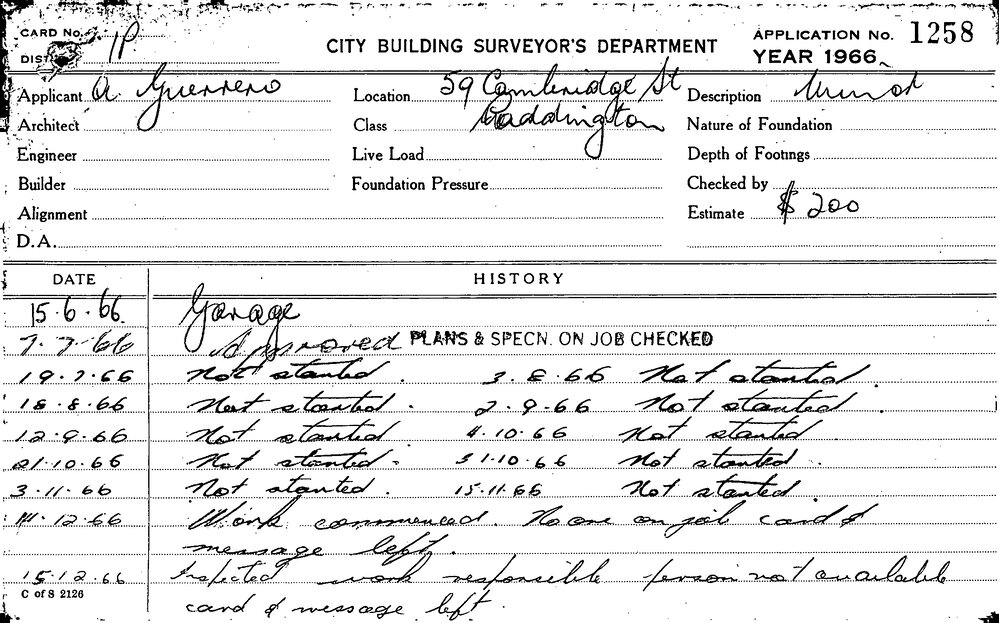 CARD No.
DIST. 1P
CITY BUILDING SURVEYOR'S DEPARTMENT
APPLICATION No. 1258
YEAR 1966
Applicant A Guerrero
Location 59 Cambridge St
Paddington
Description Minor
Architect
Class
Nature of Foundation
Engineer
Live Load
Depth of Footings
Builder
Foundation Pressure
Checked by
Alignment
Estimate $ 200
D.A.
DATE HISTORY
15.6.66. Garage
7.7.66 Approved PLANS & SPECN. ON JOB CHECKED
19.7.66 Not started. 3.8.66 Not started.
18.8.66 Not started. 2.9.66 Not started.
12.9.66 Not started 4.10.66 Not started
21.10.66 Not started. 31.10.66 Not started.
3.11.66 Not started. 15.11.66 Not started.
14.12.66 Work commenced. No one on job card &
message left.
15.12.66 Inspected work responsible person not available
card & message left.
C of S 2126